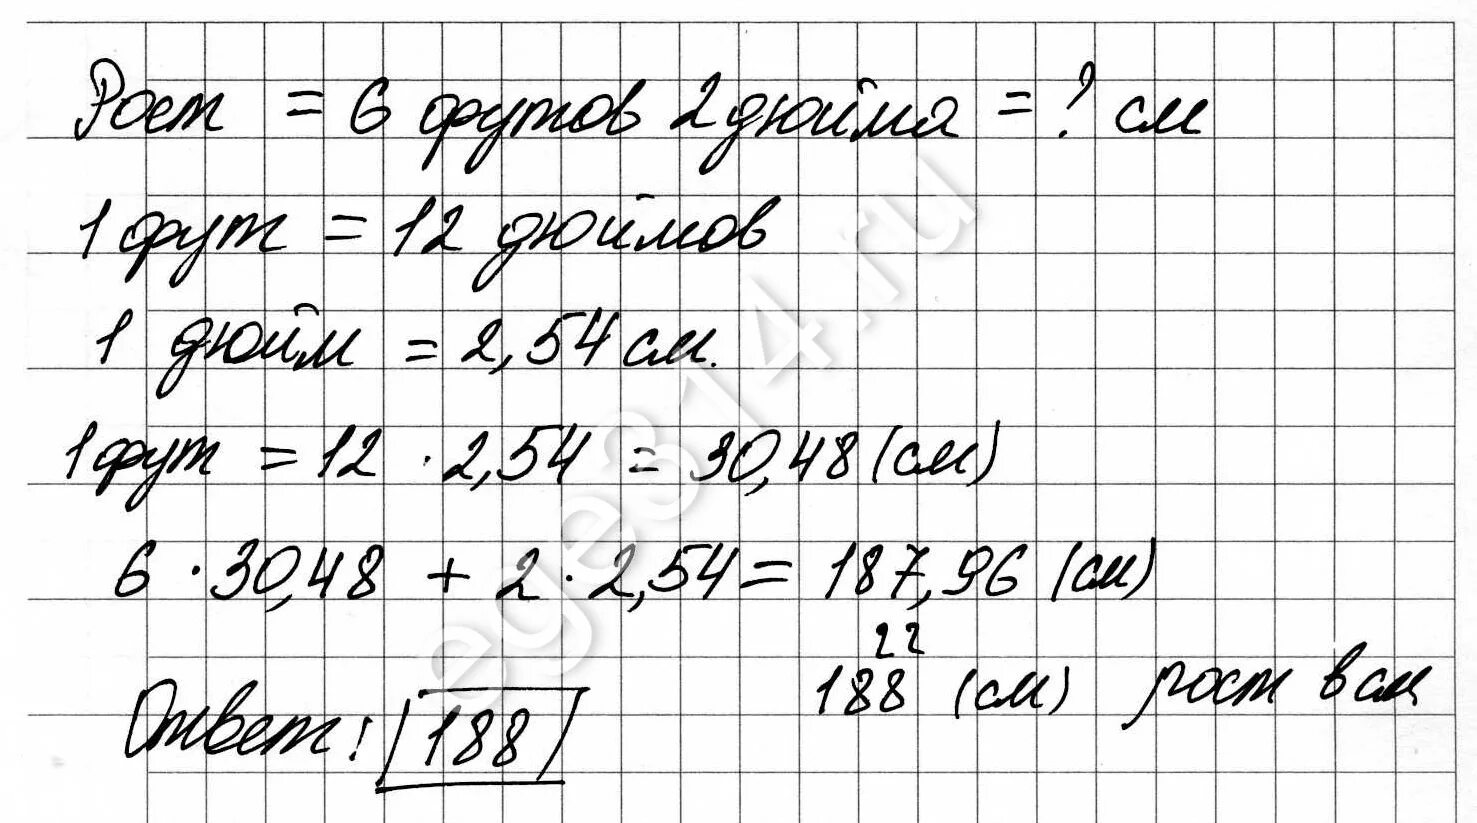 Рост = 6 футов 2 дюйма = ? см
1 фут = 12 дюймов
1 дюйм = 2,54 см.
1 фут = 12 · 2,54 = 30,48 (см)
6 · 30,48 + 2 · 2,54 = 187,96 (см)
22
188 (см) рост в см
Ответ: 188
ege314.ru